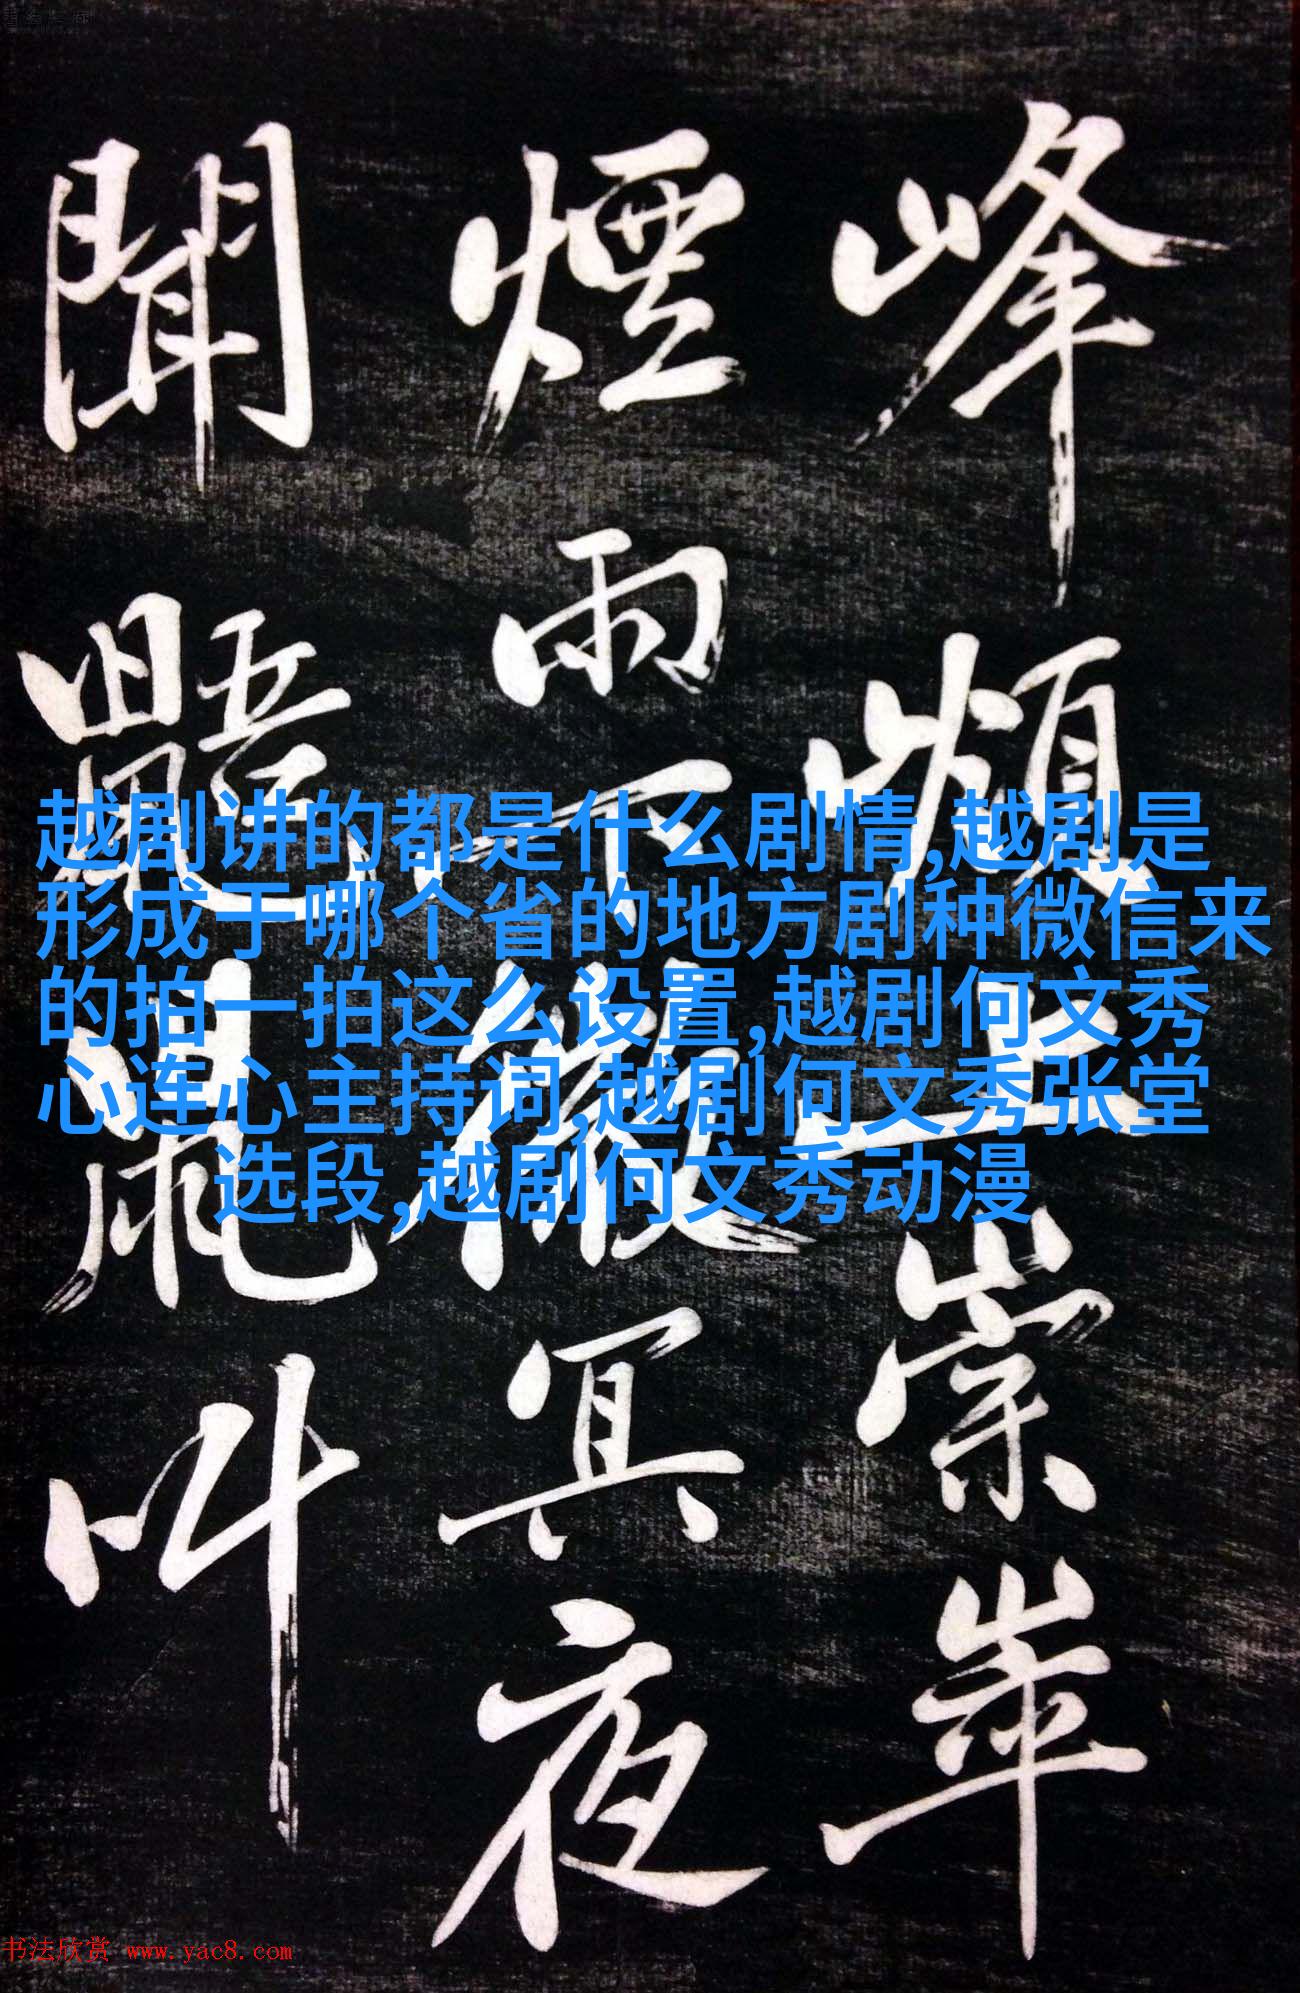 峰頗上崇崒
煙雨下微冥夜
聞鼯鼠叫
越剧讲的都是什么剧情,越剧是
形成于哪个省的地方剧种微信来
的拍一拍这么设置,越剧何文秀
心连心主持词,越剧何文秀张堂
选段,越剧何文秀动漫
书法欣赏 www.yac8.com